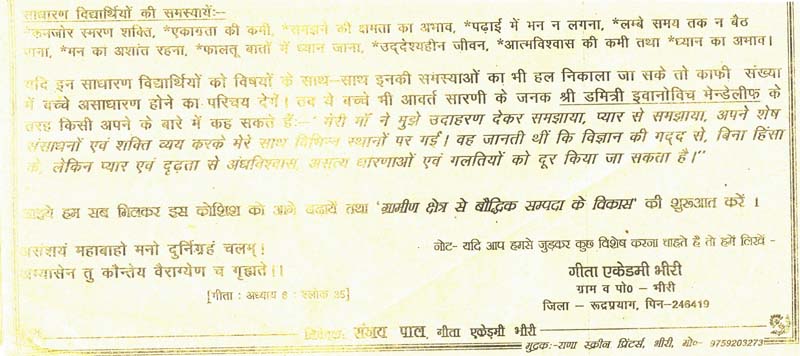 साधारण विद्यार्थियों की समस्यायें:–
*कमजोर स्मरण शक्ति, *एकाग्रता की कमी, *समझने की क्षमता का अभाव, *पढ़ाई में मन न लगना, *लम्बे समय तक न बैठ
पाना, *मन का अशांत रहना, *फालतू बातों में ध्यान जाना, *उद्देश्यहीन जीवन, *आत्मविश्वास की कमी तथा *ध्यान का अभाव।
यदि इन साधारण विद्यार्थियों को विषयों के साथ–साथ इनकी समस्याओं का भी हल निकाला जा सके तो काफी संख्या
में बच्चे असाधारण होने का परिचय देगें। तब ये बच्चे भी आवर्त सारणी के जनक श्री डमित्री इवानोविच मेन्डेलीफ के
तरह किसी अपने के बारे में कह सकते हैं:–" मेरी माँ ने मुझे उदाहरण देकर समझाया, प्यार से समझाया, अपने शेष
संसाधनों एवं शक्ति व्यय करके मेरे साथ विभिन्न स्थानों पर गई। वह जानती थीं कि विज्ञान की गद्द से, बिना हिंसा
के, लेकिन प्यार एवं दृढ़ता से अंधविश्वास, असत्य धारणाओं एवं गलतियों को दूर किया जा सकता है।"
आइये हम सब मिलकर इस कोशिश को आगे बढायें तथा 'ग्रामीण क्षेत्र से बौद्धिक सम्पदा के विकास' की शुरूआत करें ।
असंशयं महाबाहो मनो दुर्निग्रहं चलम्!
अभ्यासेन तु कौन्तेय वैराग्येण च गृह्यते।।
[गीता : अध्याय 6 : श्लोक 35]
नोट– यदि आप हमसे जुड़कर कुछ विशेष करना चाहते है तो हमें लिखें –
गीता एकेडमी भीरी
ग्राम व पो० – भीरी
जिला – रूद्रप्रयाग, पिन–246419
निवेदक: संजय पाल गीता एकेडमी भीरी
मुद्रक:-राणा स्क्रीन प्रिंटर्स, भीरी, मो०– 9759203273